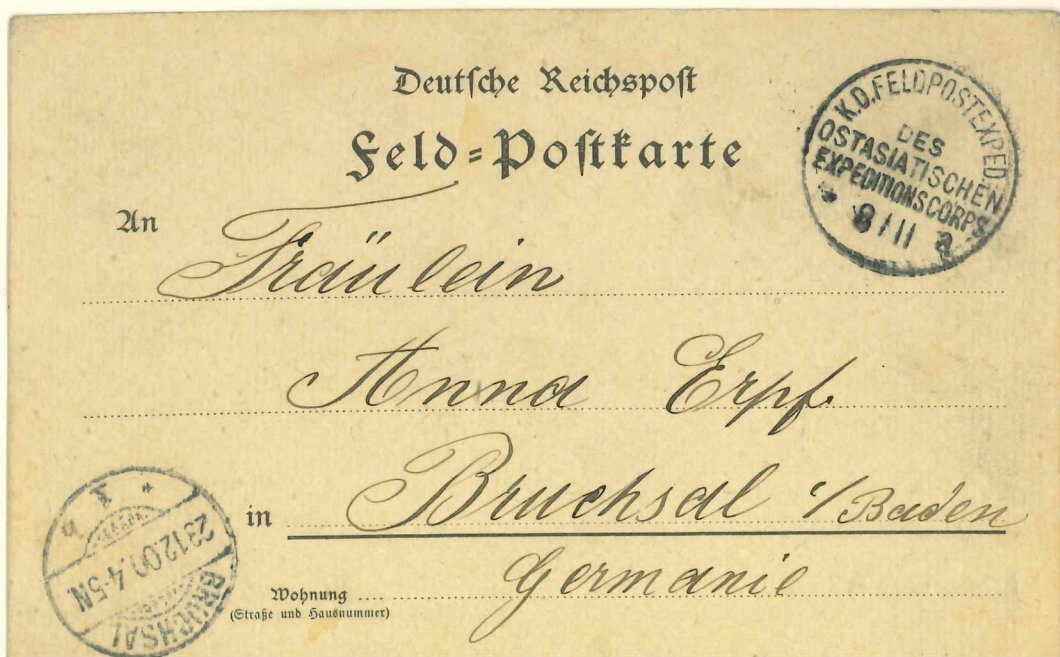 Deutsche Reichspost
Feld-Postkarte
K.D.FELDPOSTEXPED.
DES
OSTASIATISCHEN
EXPEDITIONSCORPS
8/11 a
An
Fräulein
Anna Erpf.
in Bruchsal i/Baden
Germanie
Wohnung
(Straße und Hausnummer)
BRUCHSAL
23.12.00.4-5N.